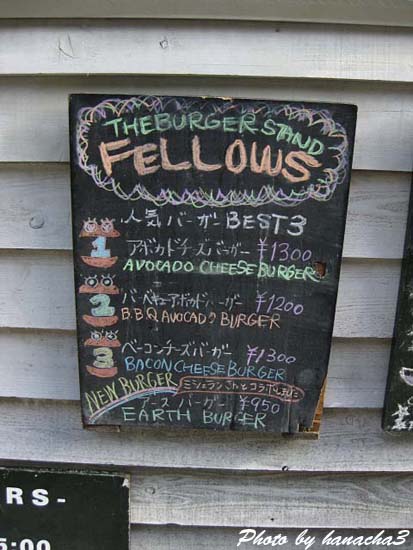 THE BURGER STAND
FELLOWS
人気バーガー BEST3
1 アボカドチーズバーガー ¥1300
AVOCADO CHEESE BURGER
2 バーベキューアボカドバーガー ¥1200
B.B.Q AVOCADO BURGER
3 ベーコンチーズバーガー ¥1300
BACON CHEESE BURGER
NEW BURGER ミシュランさんとコラボしました
アースバーガー ¥950
EARTH BURGER
RS-
5:00
Photo by hanacha3